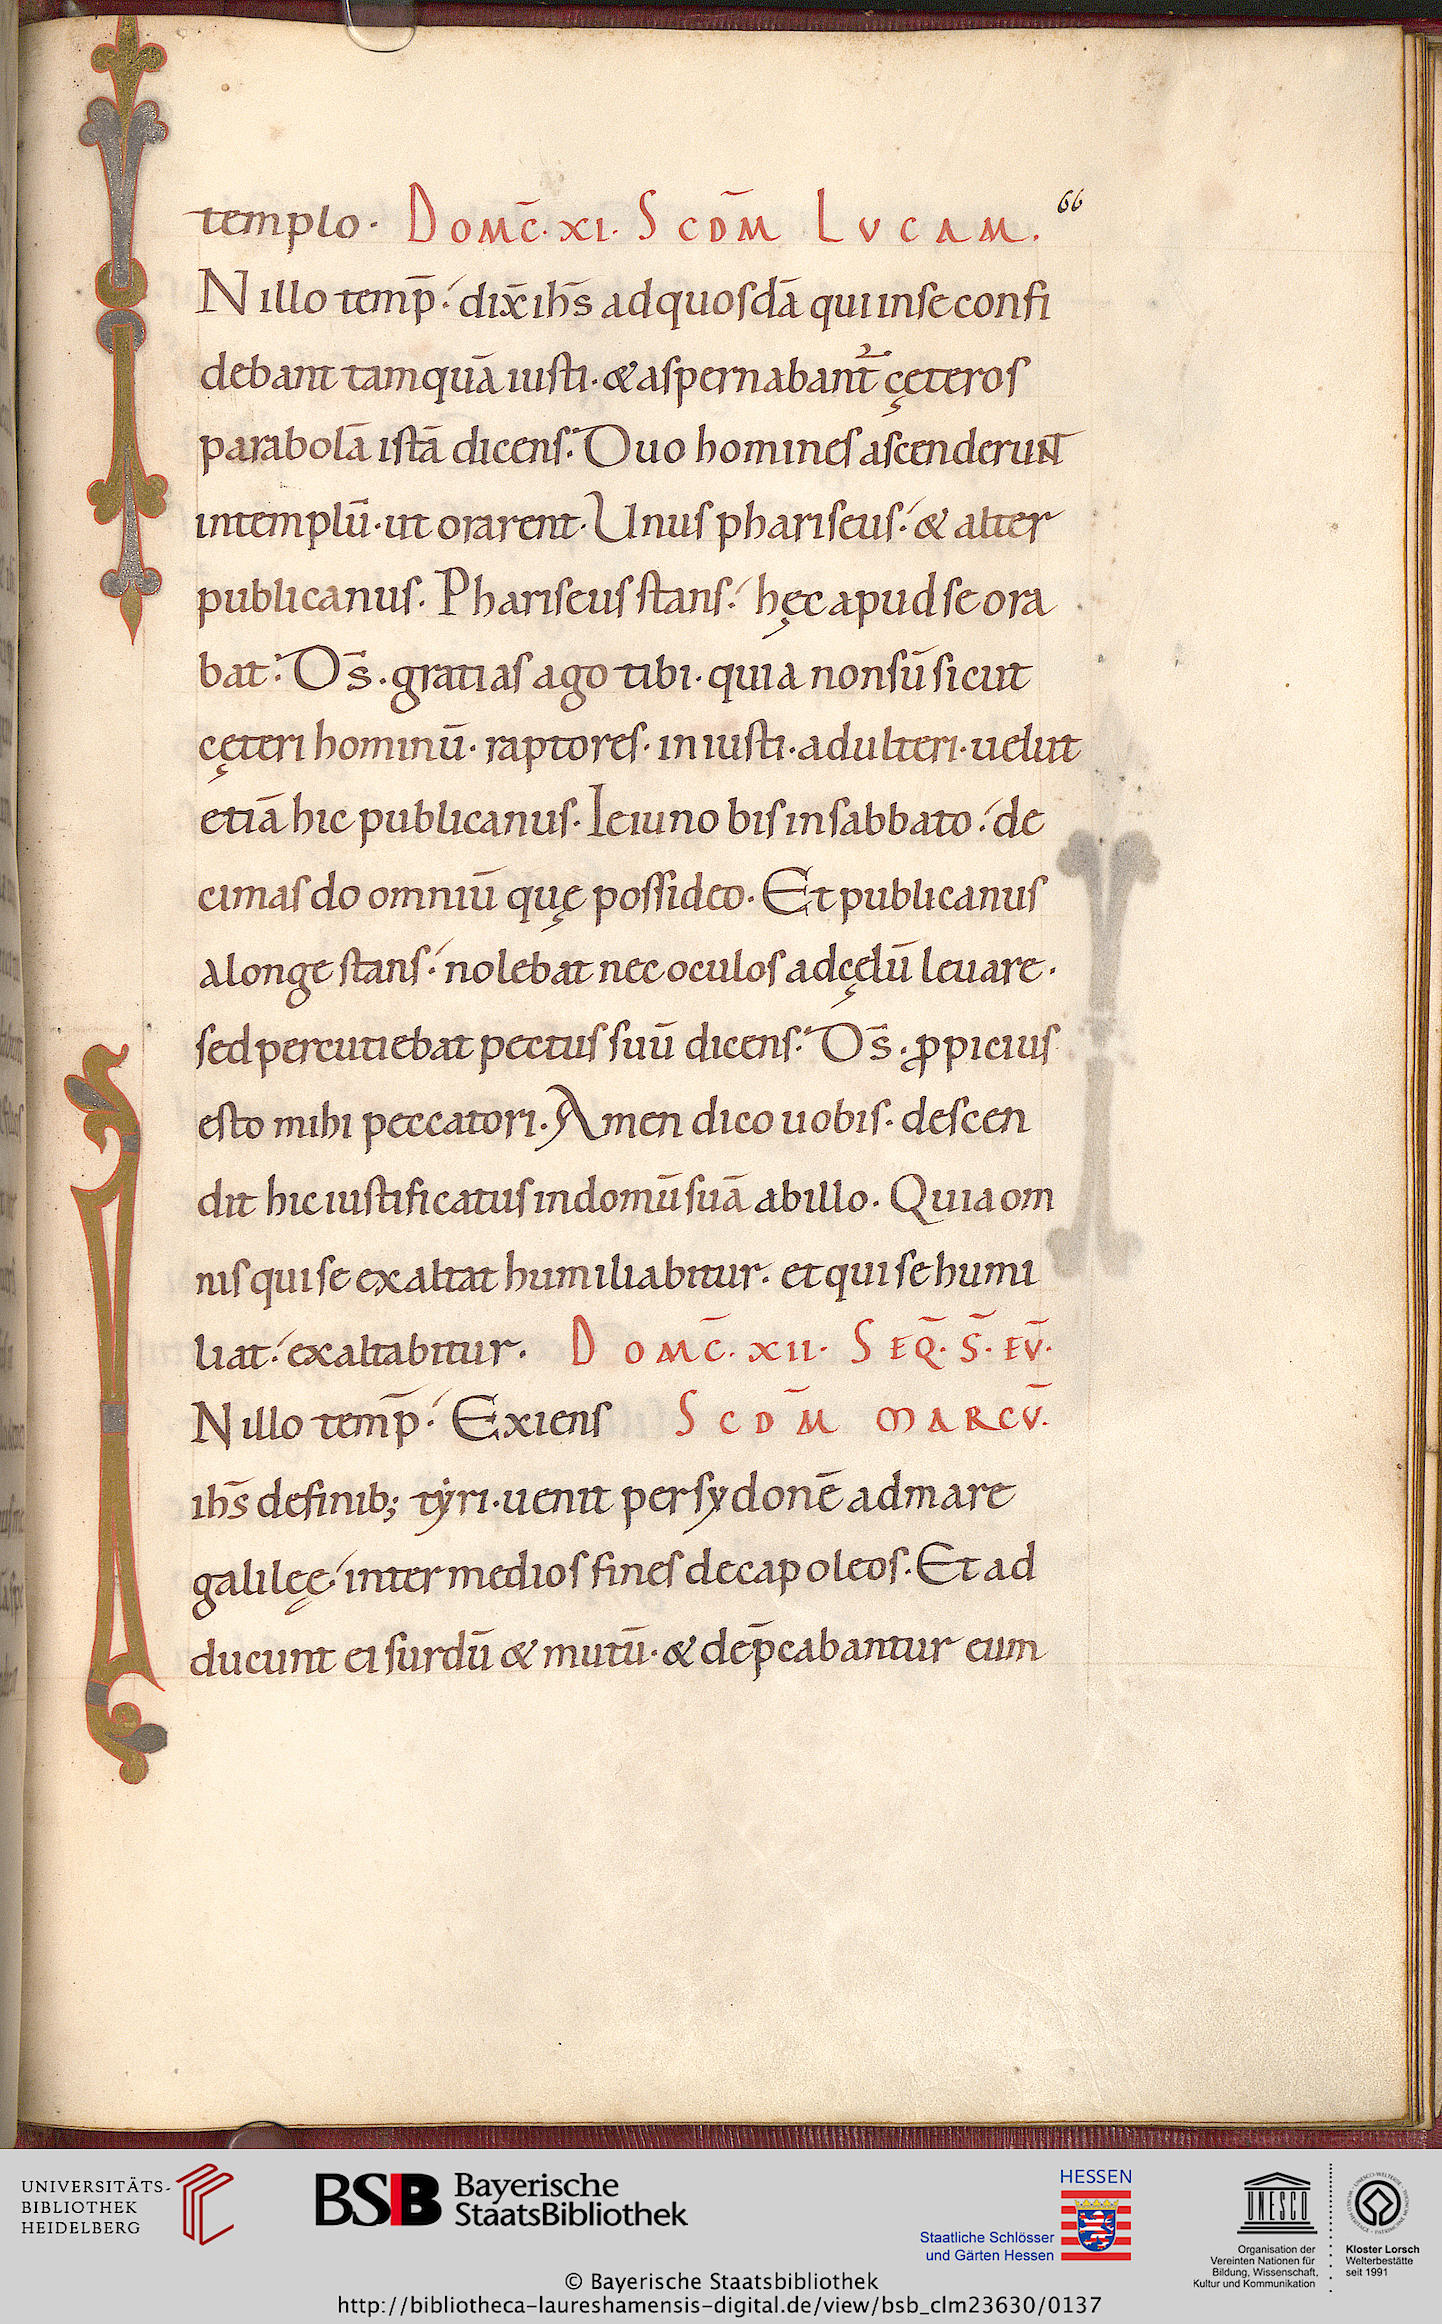 66
templo. DOMC̄. XI. SCDM̄ LVCAM.
IN illo temp̄. dix̄ ih̄s ad quosdā qui in se confi
debant tamquā iusti. & aspernabant̄ ęteros
parabolā istā dicens. Duo homines ascenderunt
in templū. ut orarent. Unus phariseus. & alter
publicanus. Phariseus stans. hęc apud se ora
bat. Ds̄. gratias ago tibi. quia non sū sicut
cęteri hominū. raptores. iniusti. adulteri. uelut
etiā hic publicanus. Ieiuno bis in sabbato. de
cimas do omniū quę possideo. Et publicanus
a longe stans. nolebat nec oculos ad cęlū leuare.
sed percutiebat pectus suū dicens. Ds̄. ꝓpicius
esto mihi peccatori. Amen dico uobis. descen
dit hic iustificatus in domū suā ab illo. Quia om
nis qui se exaltat humiliabitur. et qui se humi
liat. exaltabitur. DOMC̄. XII. SEQ̄. S̄. EV̄.
IN illo temp̄. Exiens SCDM̄ MARCV̄.
ih̄s de finib; tẏri. uenit per sydonē ad mare
galileę. inter medios fines decapoleos. Et ad
ducunt ei surdū & mutū. & dep̄cabantur eum
UNIVERSITÄTS-
BIBLIOTHEK
HEIDELBERG
BSB Bayerische
StaatsBibliothek
HESSEN
Staatliche Schlösser
und Gärten Hessen
UNESCO
Organisation der
Vereinten Nationen für
Bildung, Wissenschaft,
Kultur und Kommunikation
Kloster Lorsch
Welterbestätte
seit 1991
© Bayerische Staatsbibliothek
http://bibliotheca-laureshamensis-digital.de/view/bsb_clm23630/0137